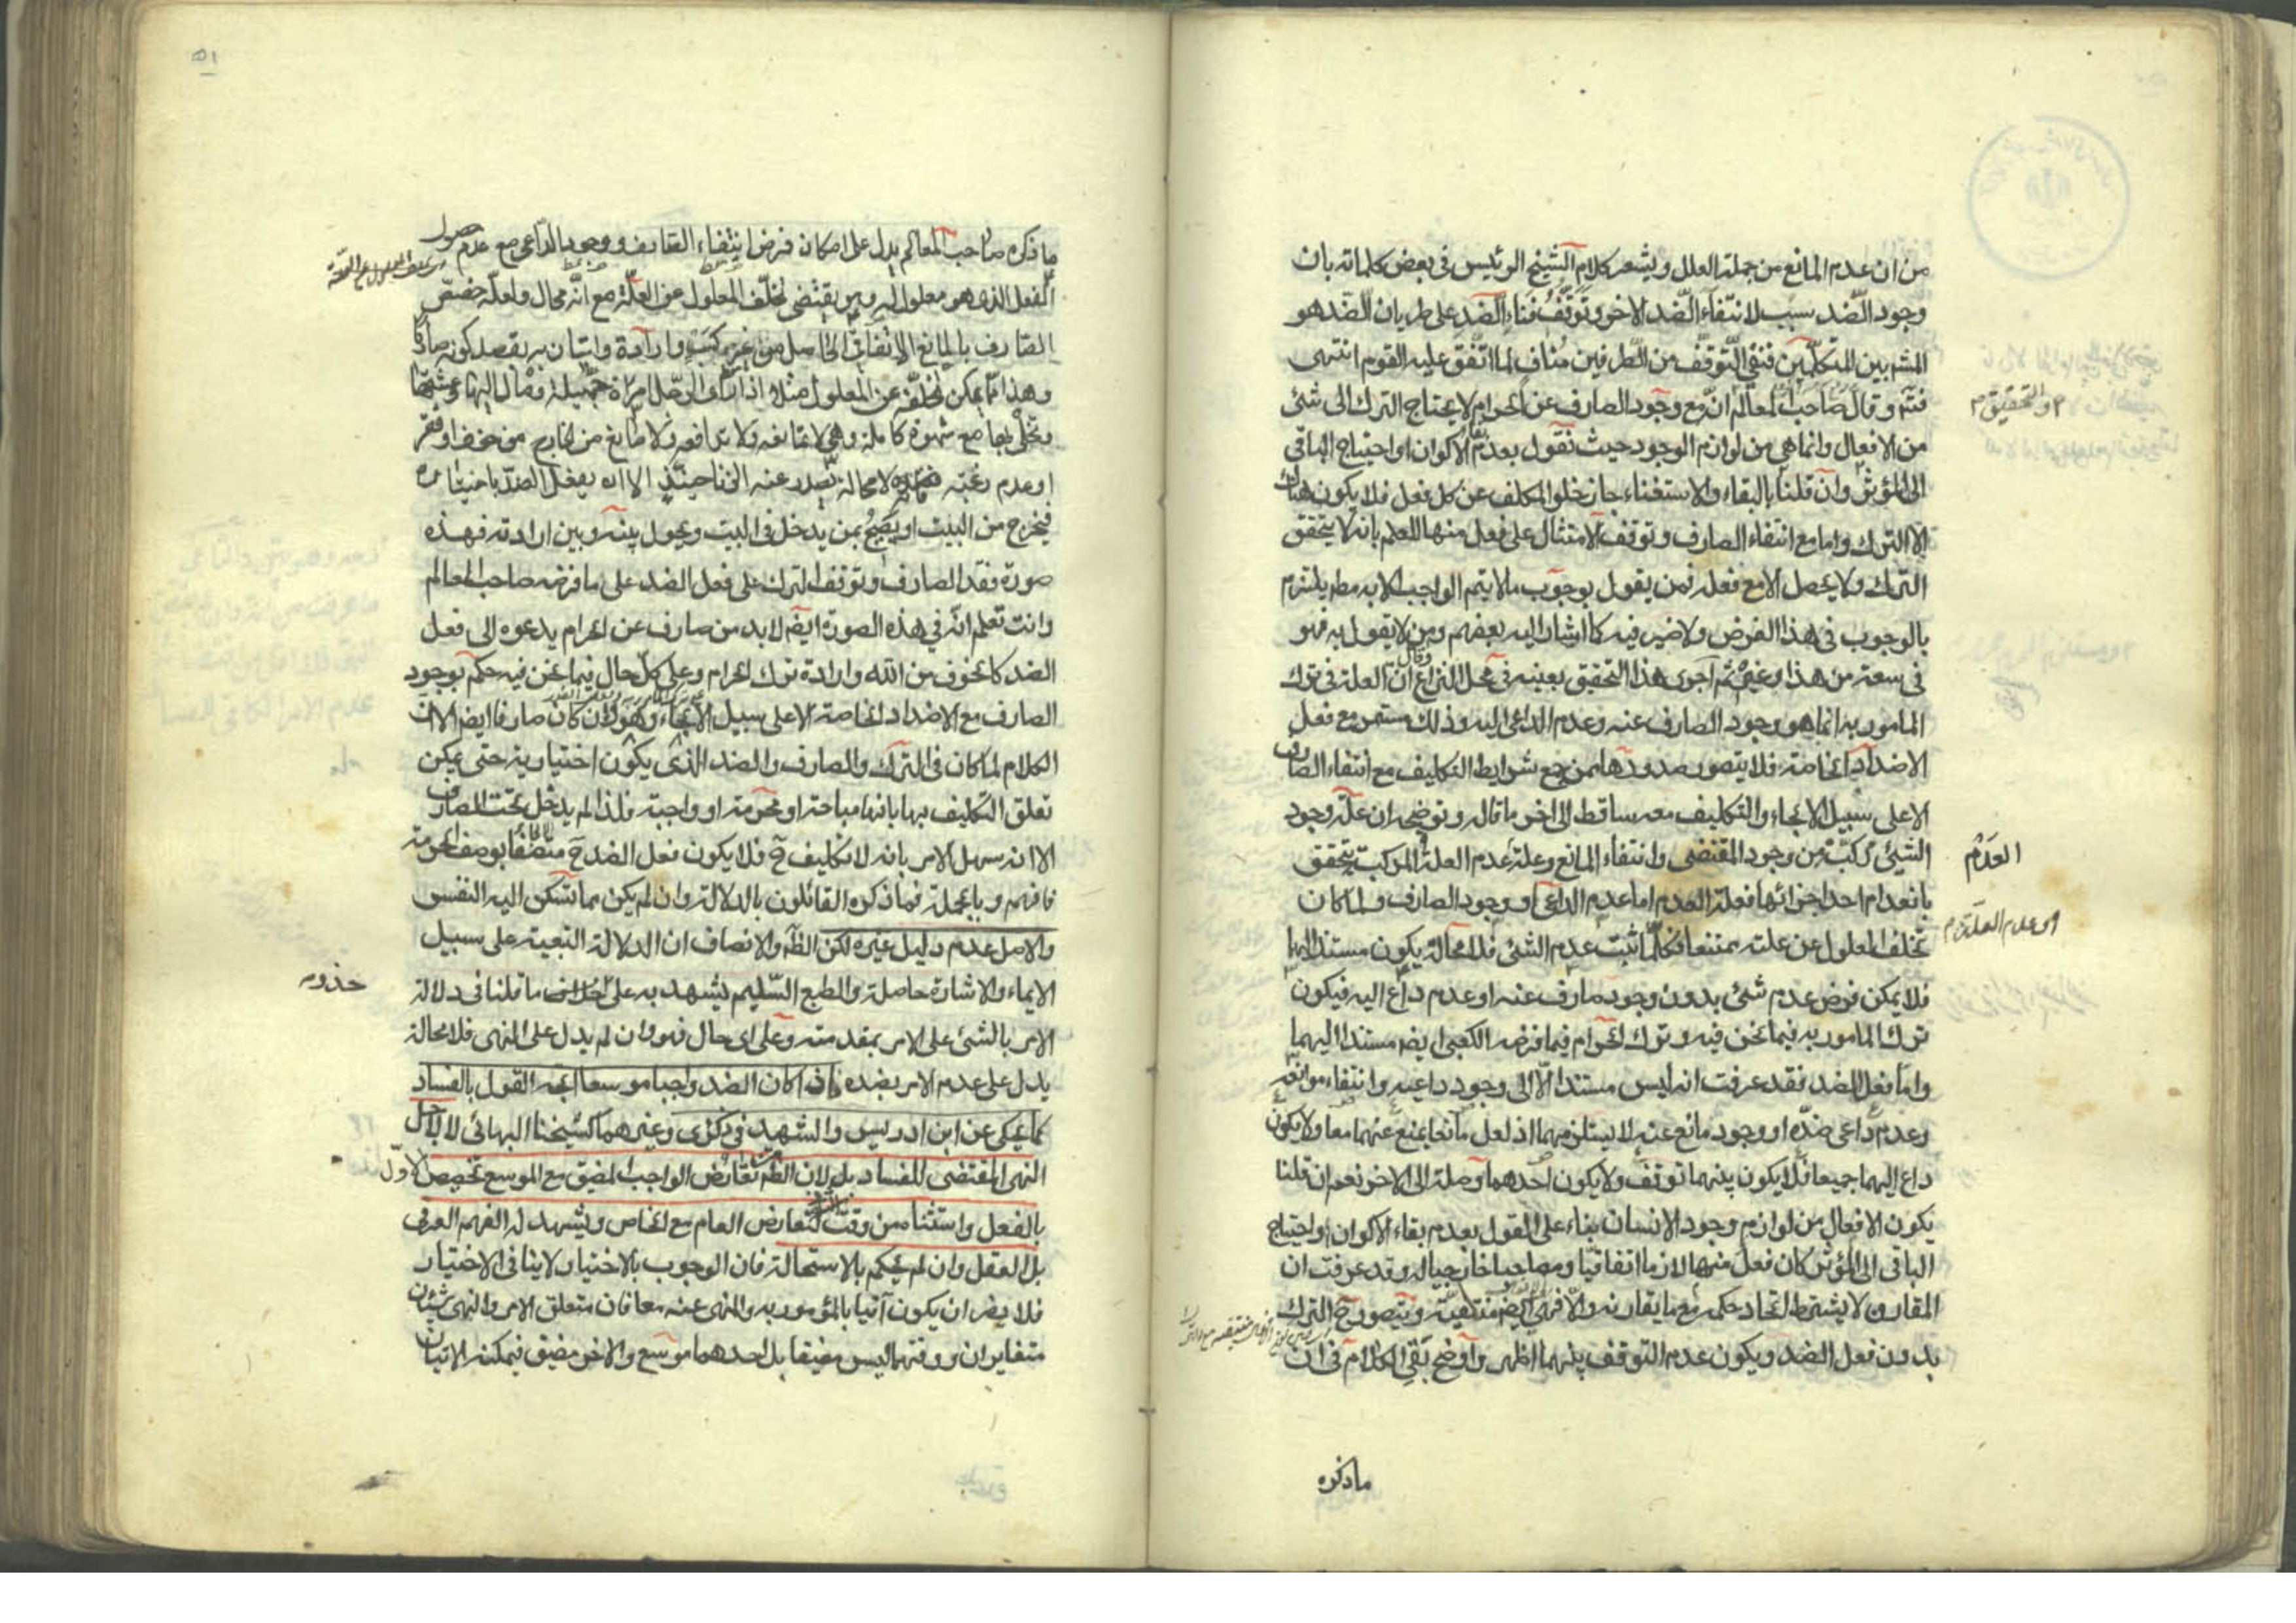 من ان عدم المانع من جملة العلل ويشعر كلام الشيخ الرئيس فى بعض كلماته بان
وجود الضد سبب لانتفاء الضد الاخر وتوقف فناء الضد على طريان الضد هو
المشهـ بين المتكلمين فنفى التوقف من الطرفين مناف لما اتفق عليه القوم انتهى
والتحقيق م
فتم وقال صاحب المعالم ان مع وجود الصارف عن الحرام لا يحتاج الترك الى شئ
من الافعال وانما هى من لوازم الوجود حيث نقول بعدم الاكوان او احتياج الباقى
الى المؤثر وان قلنا بالبقاء والاستغناء جاز خلو المكلف عن كل فعل فلا يكون هناك
الا الترك واما مع انتفاء الصارف وتوقف الامتثال على فعل منها للعلم بانه لا يتحقق
الترك ولا يحصل الا مع فعله فمن يقول بوجوب ما لا يتم الواجب الا به مطـ يلتزم
بالوجوب فى هذا الفرض ولا ضير فيه كما اشار اليه بعضهم ومن لا يقول به فهو
فى سعة من هذا وغيره ثم اجرى هذا التحقيق بعينه فى محل النزاع وقال ان العلة فى ترك
المامور به انما هو وجود الصارف عنه وعدم الداعى اليه وذلك مستمر مع فعل
الاضداد الخاصة فلا يتصور صدورها ممن جمع شرايط التكليف مع انتفاء الصارف
الا على سبيل الالجاء والتكليف معه ساقط الى اخر ما قال وتوضيحه ان علة وجود
العدم م
الشئ مركبة من وجود المقتضى وانتفاء المانع وعلة عدم العلة المركبة يتحقق
بانعدام احد اجزائها فعلة العدم اما عدم الداعى او وجود الصارف ولما كان
او عدم العلة م
تخلف المعلول عن علته ممتنعا فكلما ثبت عدم الشئ فلا محالة يكون مستندا اليها
فلا يمكن فرض عدم شئ بدون وجود صارف عنه او عدم داع اليه فيكون
ترك المامور به فيما نحن فيه وترك الحرام فيما فرضه الكعبى ايضـ مستندا اليهما
واما فعل الضد فقد عرفت انه ليس مستندا الا الى وجود داعيه وانتفاء موانعه
وعدم داعى ضده او وجود مانع عنه لا يستلزمهما اذ لعل مانعا يمنع عنهما معا ولا يكون
داع اليهما جميعا فلا يكون بينهما توقف ولا يكون احدهما وصلة الى الاخر نعم ان قلنا
يكون الافعال من لوازم وجود الانسان بناء على القول بعدم بقاء الاكوان او احتياج
الباقى الى المؤثر كان فعل منها لازما اتفاقيا ومصاحبا خارجيا له وقد عرفت ان
المقارن لا يشترط اتحاد حكمه مع ما يقارنه والا فهى ايضـ منتفية ويتصور ح الترك
بدون فعل الضد ويكون عدم التوقف بينهما اظهر واوضح بقى الكلام فى ان
ما ذكره
ما ذكره صاحب المعالم يدل على امكان فرض انتفاء الصارف ووجود الداعى مع عدم حصول
الفعل الذى هو معلول له وهو يقتضى تخلف المعلول عن العلة مع انه محال ولعله خصص
الصارف بالمانع الاتفاقى الحاصل من غير كسب وارادة واتيان به بقصد كونه صارفا
وهذا مما يمكن تخلفه عن المعلول مثلا اذا اراد الرجل امراة جميلة ومال اليها
وتخلى بها مع شهوة كاملة وهى لا تمانعه ولا تدافعه ولا مانع من الخارج من خوف او فقر
او عدم رغبة فهو لا محالة يصدر عنه الزنا حينئذ الا انه يفعل الضد باختياره
فيخرج من البيت او يصيح بمن يدخل فى البيت ويحول بينه وبين ارادته فهذه
صورة فقد الصارف وتوقف الترك على فعل الضد على ما فرضه صاحب المعالم
وانت تعلم ان فى هذه الصورة ايضـ لا بد من صارف عن الحرام يدعوه الى فعل
الضد كالخوف من الله وارادة ترك الحرام وعلى كل حال فيما نحن فيه حكم بوجود
الصارف مع الاضداد الخاصة الا على سبيل الالجاء وهو وان كان صارفا ايضـ الا ان
الكلام لما كان فى الترك والصارف والضد الذى يكون اختيارية حتى يمكن
تعلق التكليف بها بانها مباحة او محرمة او واجبة فلذا لم يدخل تحت الصارف
الا انه سهل الامر بانه لا تكليف ح فلا يكون فعل الضد ح متصفا بوصف الحرمة
فافهم وبالجملة فما ذكره القائلون بالدلالة وان لم يكن مما تسكن اليه النفس
والاصل عدم دليل غيره لكن الظـ والانصاف ان الدلالة التبعية على سبيل
الايماء والاشارة حاصلة والطبع السليم يشهد به على خلاف ما قلنا فى دلالة
حذوه
الامر بالشئ على الامر بمقدمته وعلى اى حال فهو وان لم يدل على النهى فلا محالة
يدل على عدم الامر بضده فاذا كان الضد واجبا موسعا اتجه القول بالفساد
كما يحكى عن ابن ادريس والشهيد فى ذكرى وغيرهما كشيخنا البهائى لا لاجل
النهى المقتضى للفساد بل لان الظـ من تعارض الواجب المضيق مع الموسع تخصيص الاول
بالفعل واستثناءه من وقت كتعارض العام مع الخاص ويشهد له الفهم العرفى
بل العقل وان لم يحكم بالاستحالة فان الوجوب بالاختيار لا ينافى الاختيار
فلا يضر ان يكون آتيا بالمؤمور به والمنهى عنه معا فان متعلق الامر والنهى شيئان
متغايران ووقتهما ليس مضيقا بل احدهما موسع والاخر مضيق فيمكنه الاتيان